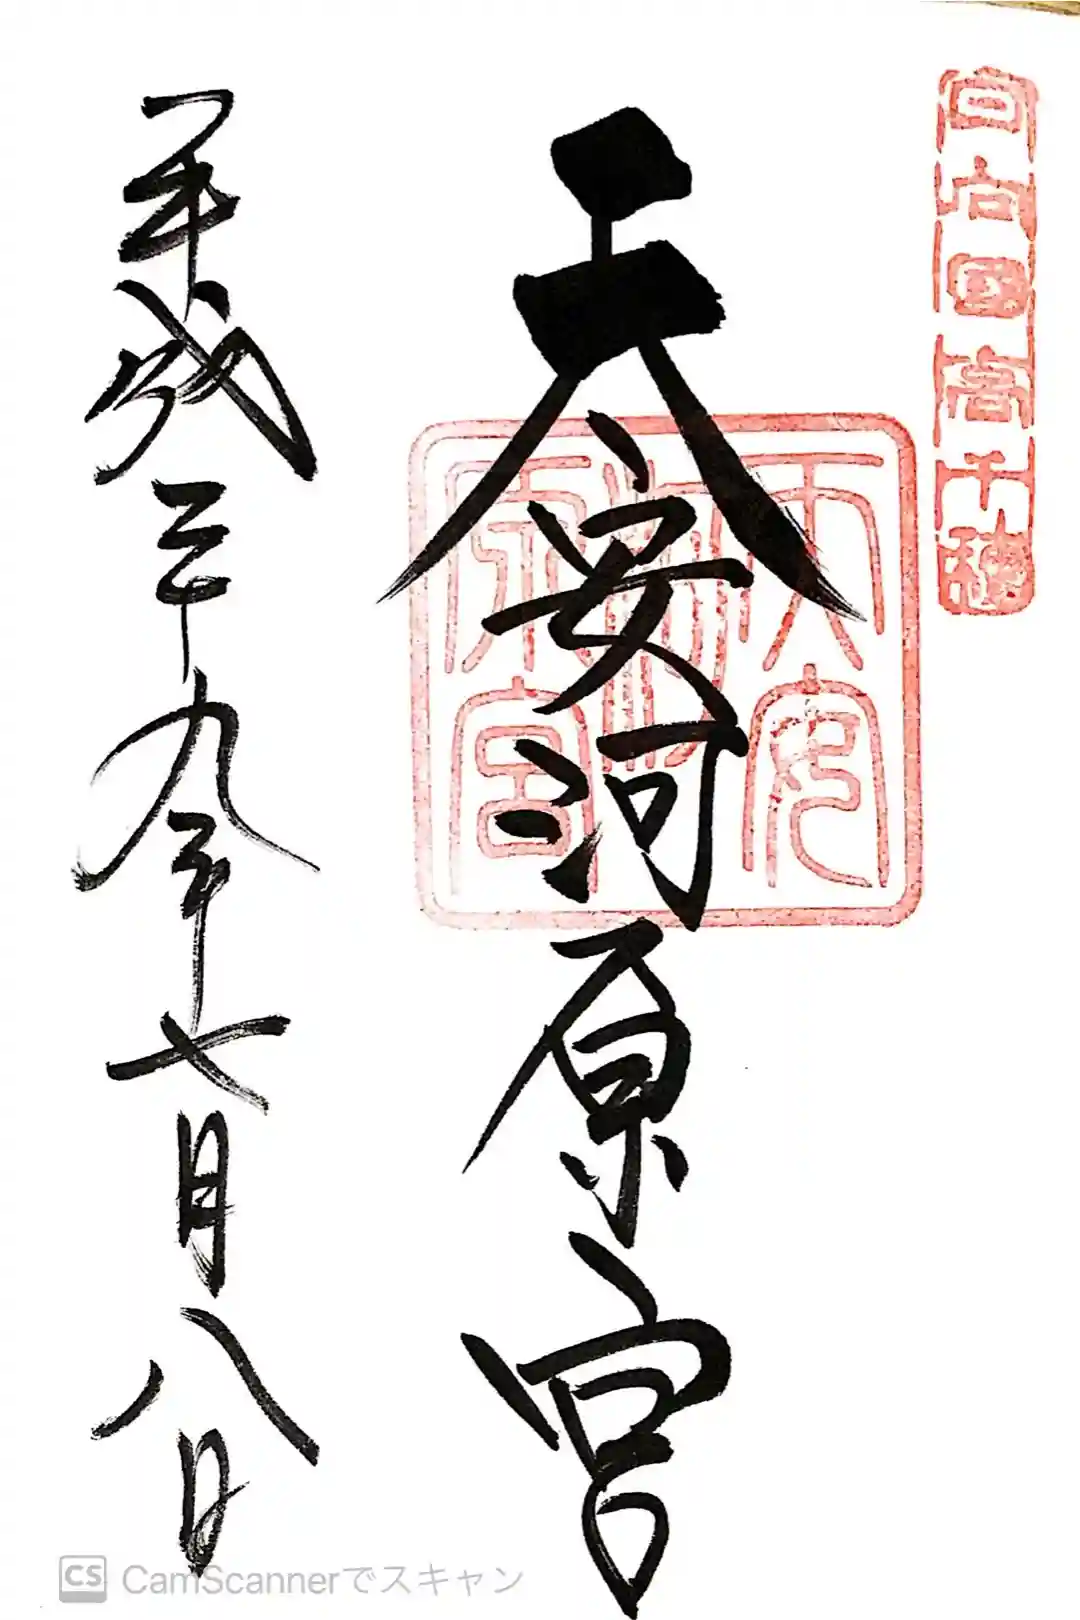 日向國高千穂
天安河原宮
天安河原宮
平成二十九年七月八日
CS CamScannerでスキャン